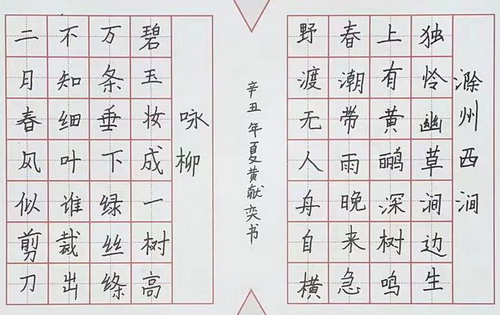 滁州西涧
独怜幽草涧边生
上有黄鹂深树鸣
春潮带雨晚来急
野渡无人舟自横
辛丑年夏黄献奕书
咏柳
碧玉妆成一树高
万条垂下绿丝绦
不知细叶谁裁出
二月春风似剪刀